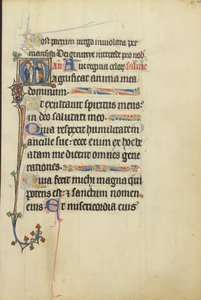 Post partum virgo inviolata per
mansisti Dei genitrix intercede pro nob
an Ave regina celor psalm
Magnificat anima mea
dominum
Et exultavit spiritus meus
in deo salutari meo
Quia respexit humilitatem
ancille sue: ecce enim ex hoc b
atam me dicent omnes gene
rationes
Quia fecit michi magna qui
potens est: et sanctum nomen
eius Et misericordia eius